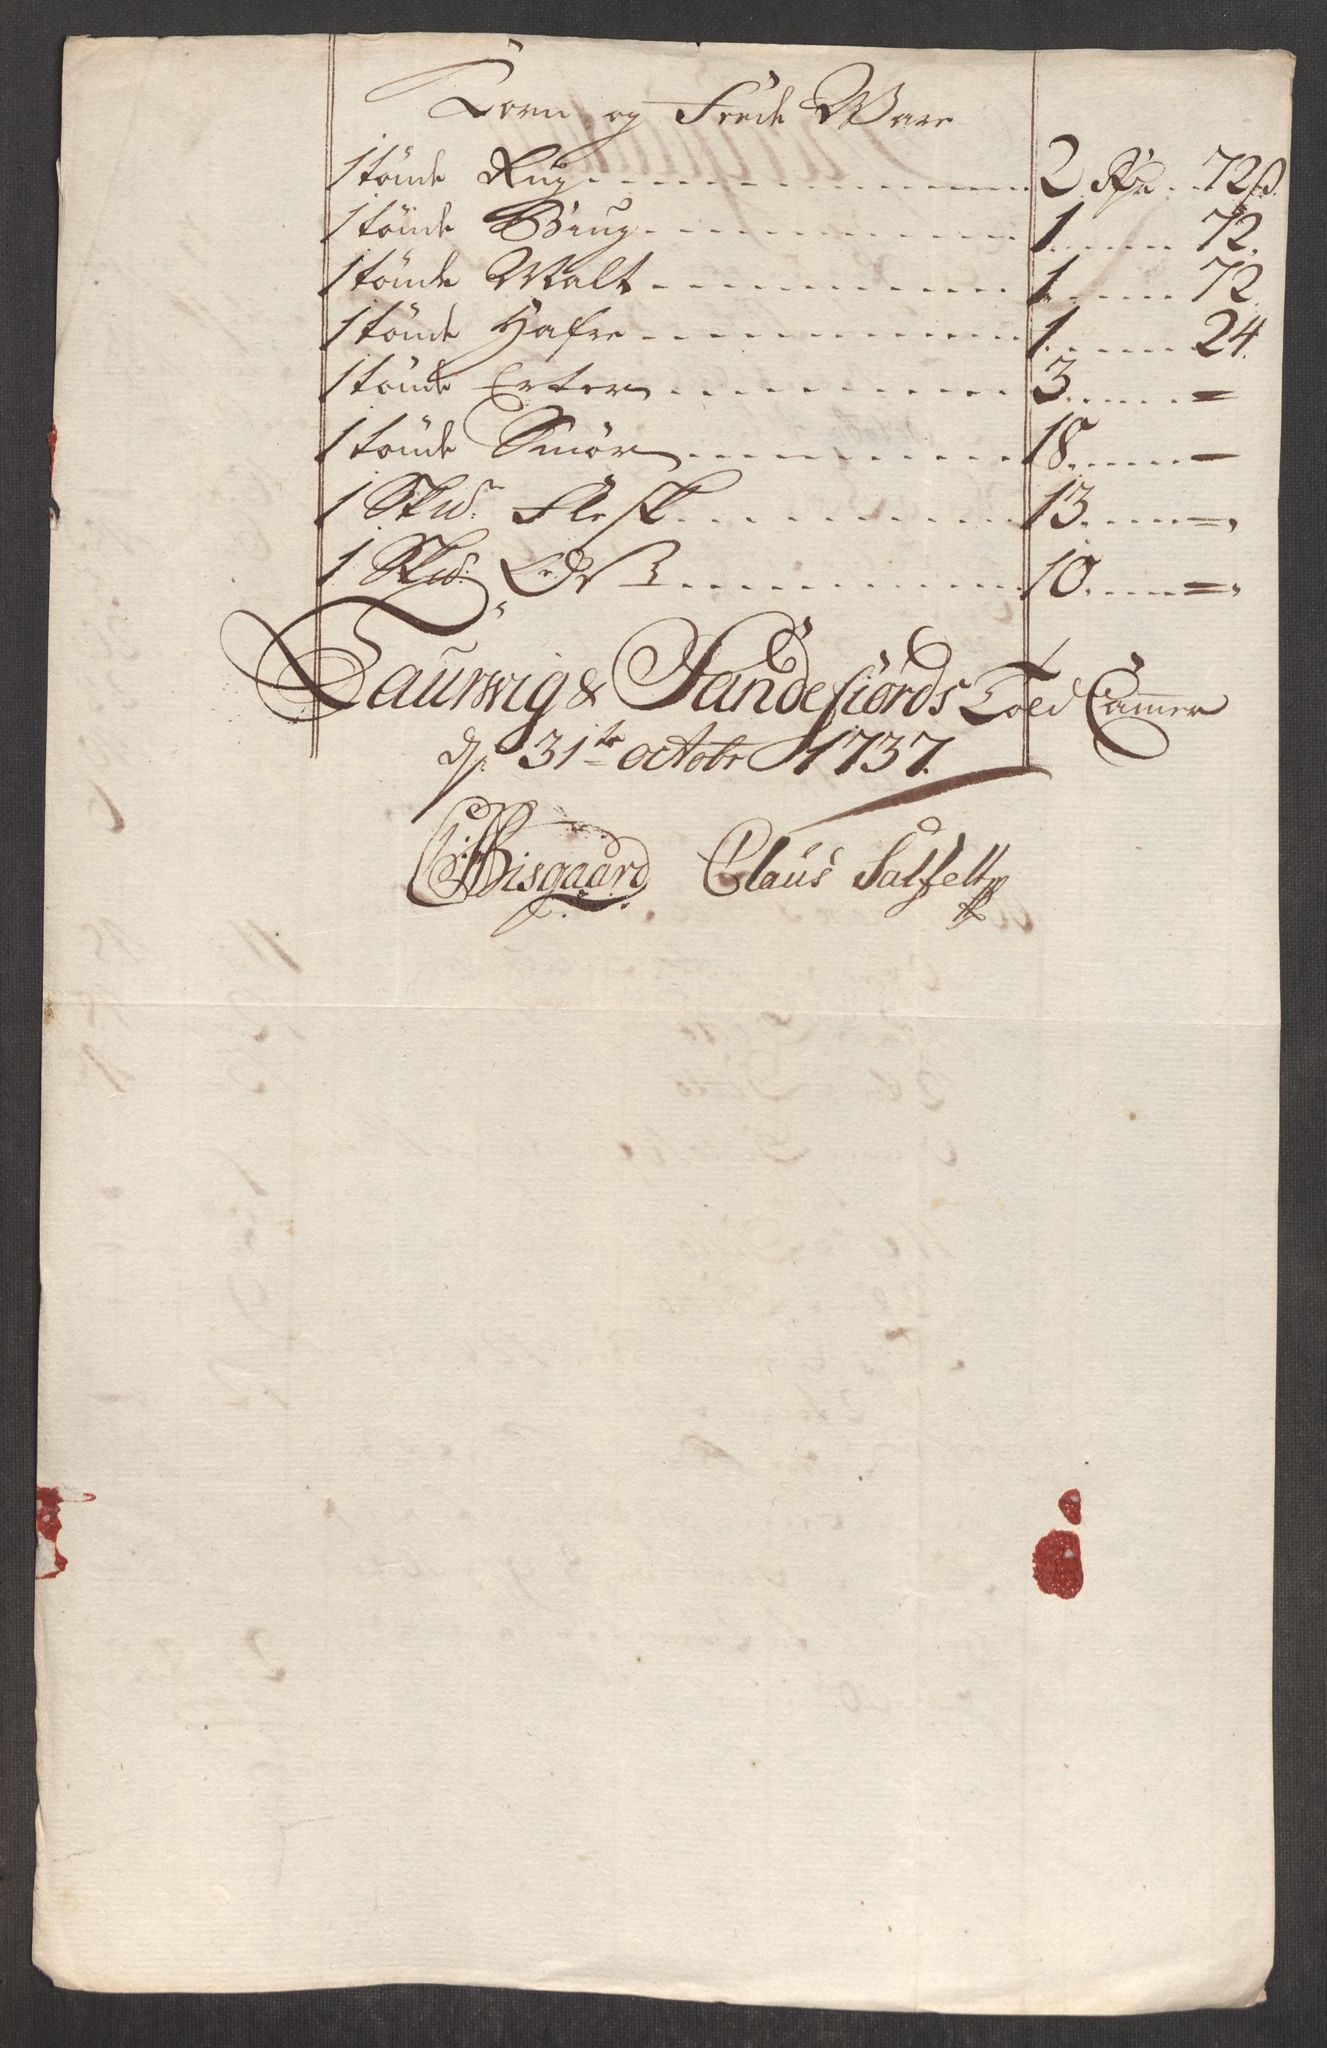 Korn og Fede Ware
1 tönde Rug 2 Rdr 72 ß.
1 tönde Biug 1 72.
1 tönde Malt 1 72.
1 tönde Hafre 1 24.
1 tönde Erter 3 =
1 tönde Smör 18 -
1 Skd Flesk 13 =
1 Skd 10 =
Laurwig & Sandefiords Told Cammer
d. 31te octobr 1737.
Wisgaard Claus Salfelt